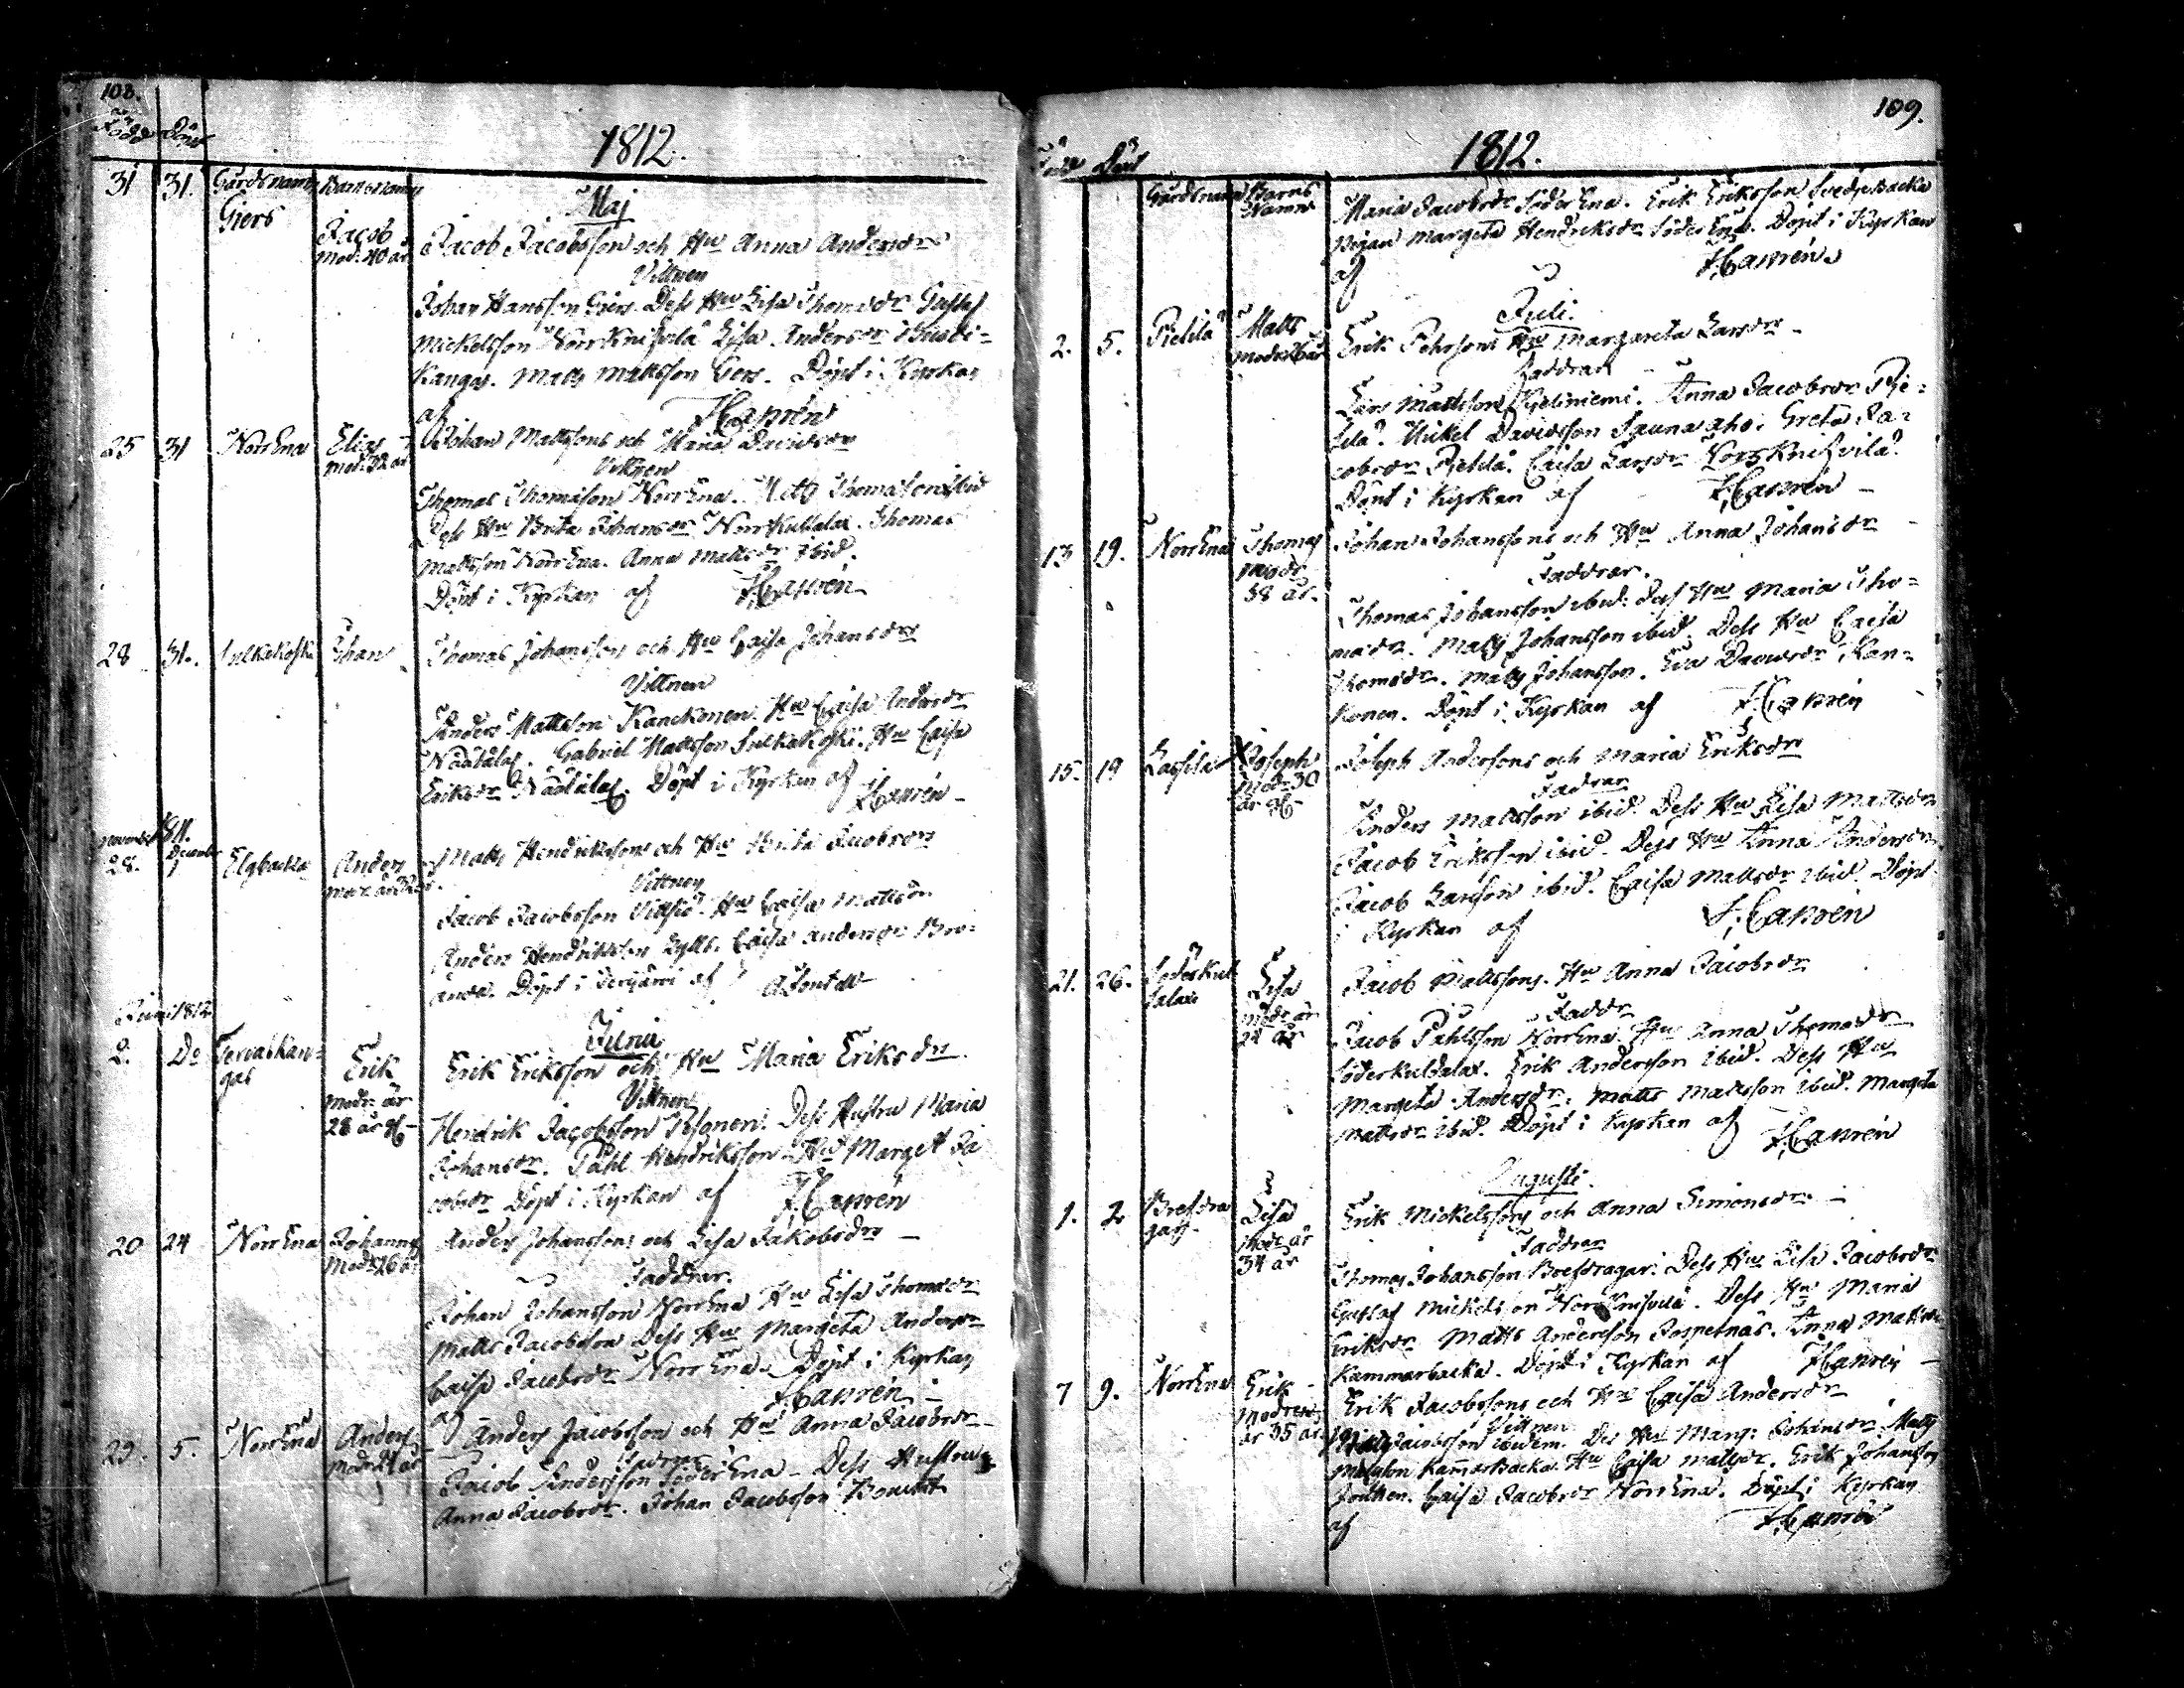 108.
Född Döpt
1812.
31 31. Gårdsnamn Barnsnamn
Maj
Giers Jacob Jacob Jacobsson och Hu Anna Andersdr
Mod: 40 år
Vittnen
Johan Hansson Giers. Dess Hu Lisa Thomsdr Gustaf
Mickelsson NorrKnifvilä Lisa Andersdr
Kangas. Matts Mattsson Giers. Döpt i Kyrkan
af HCasrén
25 31 NorrEna Elias Johan Mattssons och Maria Davidsdr
Mod: 32 år
Vittnen
Thomas Thomasson NorrEna. Matts Thomasson ibid
Dess Hu Brita Johansdr NorrKullalax. Thomas
Mattsson NorrEna. Anna Mattsdr ibid.
Döpt i Kyrkan af HCasrén
28 31. Sulkakoski Johan Thomas Johansson och Hu Caisa Johansdr
Vittnen
Anders Mattsson Kanckonen. Hu Caisa Andersdr
Näätälä. Gabriel Mattsson Sulkakoski. Hu Caisa
Eriksdr Näätälä. Döpt i Kyrkan af HCasrén
November 1811. December
28. 1 Elgbacka Anders Matts Hendrickssons och Hu Brita Jacobsdr
Vittnen
Jacob Jacobsson Hu Caisa Mattsdr.
Anders Hendricksson Lytts. Caisa Andersdr Bro-
anda. Döpt i Terijärvi af
Juni 1812
Junii
2. Do Tervaskan- Erik Erik Eriksson och Hu Maria Eriksdr
gas
Modr är
28 år
Vittnen
Hendrik Jacobsson Dess Hustru Maria
Johansdr. Påhl Hendriksson Hu Marget Ja
cobsdr Döpt i Kyrkan af HCasrén
20 24 NorrEna Johannes Anders Johanssons och Lisa Jakobsdr
Modr 26 år
Faddrar.
Johan Johansson NorrEna Hu Lisa Thomsdr
Matts Jacobsson Dess Hu Margeta Andersdr
Caisa Jacobsdr NorrEna. Döpt i Kyrkan
af HCasrén
29. 5. NorrEna Anders Anders Jacobsson och Hu Anna Jacobsdr
Modr 24 år
Fadrar
Jacob Andersson SöderEna - Dess Hustru
Anna Jacobsdr. Johan Jacobsson
109.
1812.
Född Döpt
Gårdsnamn Barns Namn
Maria Jacobsdr SöderEna. Erik Eriksson Svedjebacka
Pigan Margeta Hendriksdr SöderEna. Döpt i Kyrkan
af HCasrén
Juli.
2. 5. Pielilä Matts Erik Pehrssons Hu Margareta Larsdr
Modr 26 år
Faddrar
Lars Mattsson Kieliniemi. Anna Jacobsdr Pie-
lilä. Mickel Davidsson Saunaaho. Greta Ja-
cobsdr Pielilä. Caisa Larsdr NorrKnifvilä.
Döpt i Kyrkan af HCasrén
13 19. NorrEna Thomas Johan Johanssons och Hu Anna Johansdr
modr
38 år.
Faddrar.
Thomas Johansson ibid: dess Hu Maria Tho-
masdr. Matts Johansson ibid. Dess Hu Caisa
Thomsdr. Matts Johansson. Eva Davidsdr Kan-
konen. Döpt i Kyrkan af HCasrén
15. 19 Lassila Joseph Joseph Anderssons och Maria Eriksdr
Modr 30
år
Fadrar
Anders Mattsson ibid. Dess Hu Lisa Mattsdr
Jacob Eriksson ibid. Dess Hu Anna Andersdr
Jacob Larsson ibid. Caisa Mattsdr ibid. Döpt
i Kyrkan af HCasrén
21. 26. Söderkul Lisa Jacob Mattssons. Hu Anna Jacobsdr
lalax
modr är
24 år
Faddr
Jacob Påhlsson NorrEna. Hu Anna Thomsdr
Söderkullalax. Erik Andersson ibid. Dess Hu
Margeta Andersdr. Matts Mattsson ibid. Margeta
Mattsdr ibid. Döpt i Kyrkan af HCasrén
Augusti.
1. 2 Brefdra Lisa Erik Mickelssons och Anna Simonsdr
gars
Modr är
34 år
Faddrar
Thomas Johansson Brefdragar. Dess Hu Lisa Jacobsdr
Gustaf Mickelsson NorrKnifvilä. Dess Hu Maria
Eriksdr Matts Andersson Jospetnäs. Anna Mattsdr
Kammarbacka. Döpt i Kyrkan af HCasrén
7 9. NorrEna Erik Erik Jacobssons och Hu Caisa Andersdr
Modren
är 35 år
Vittnen
Matts Jacobsson ibidem. Des Hu Marg: Johansdr Matts
Kamarbacka. Hu Caisa Mattsdr. Erik Johansson
Caisa Jacobsdr NorrEna. Döpt i Kyrkan
af HCasrén